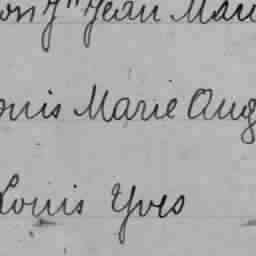 Jean Mari
ouis Marie Aug
Louis Yves